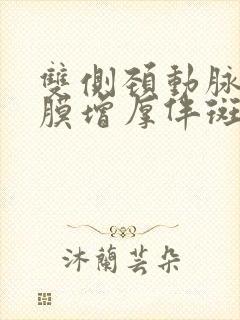 雙側頚動脈
膜增厚伴斑
沐蘭芸朵